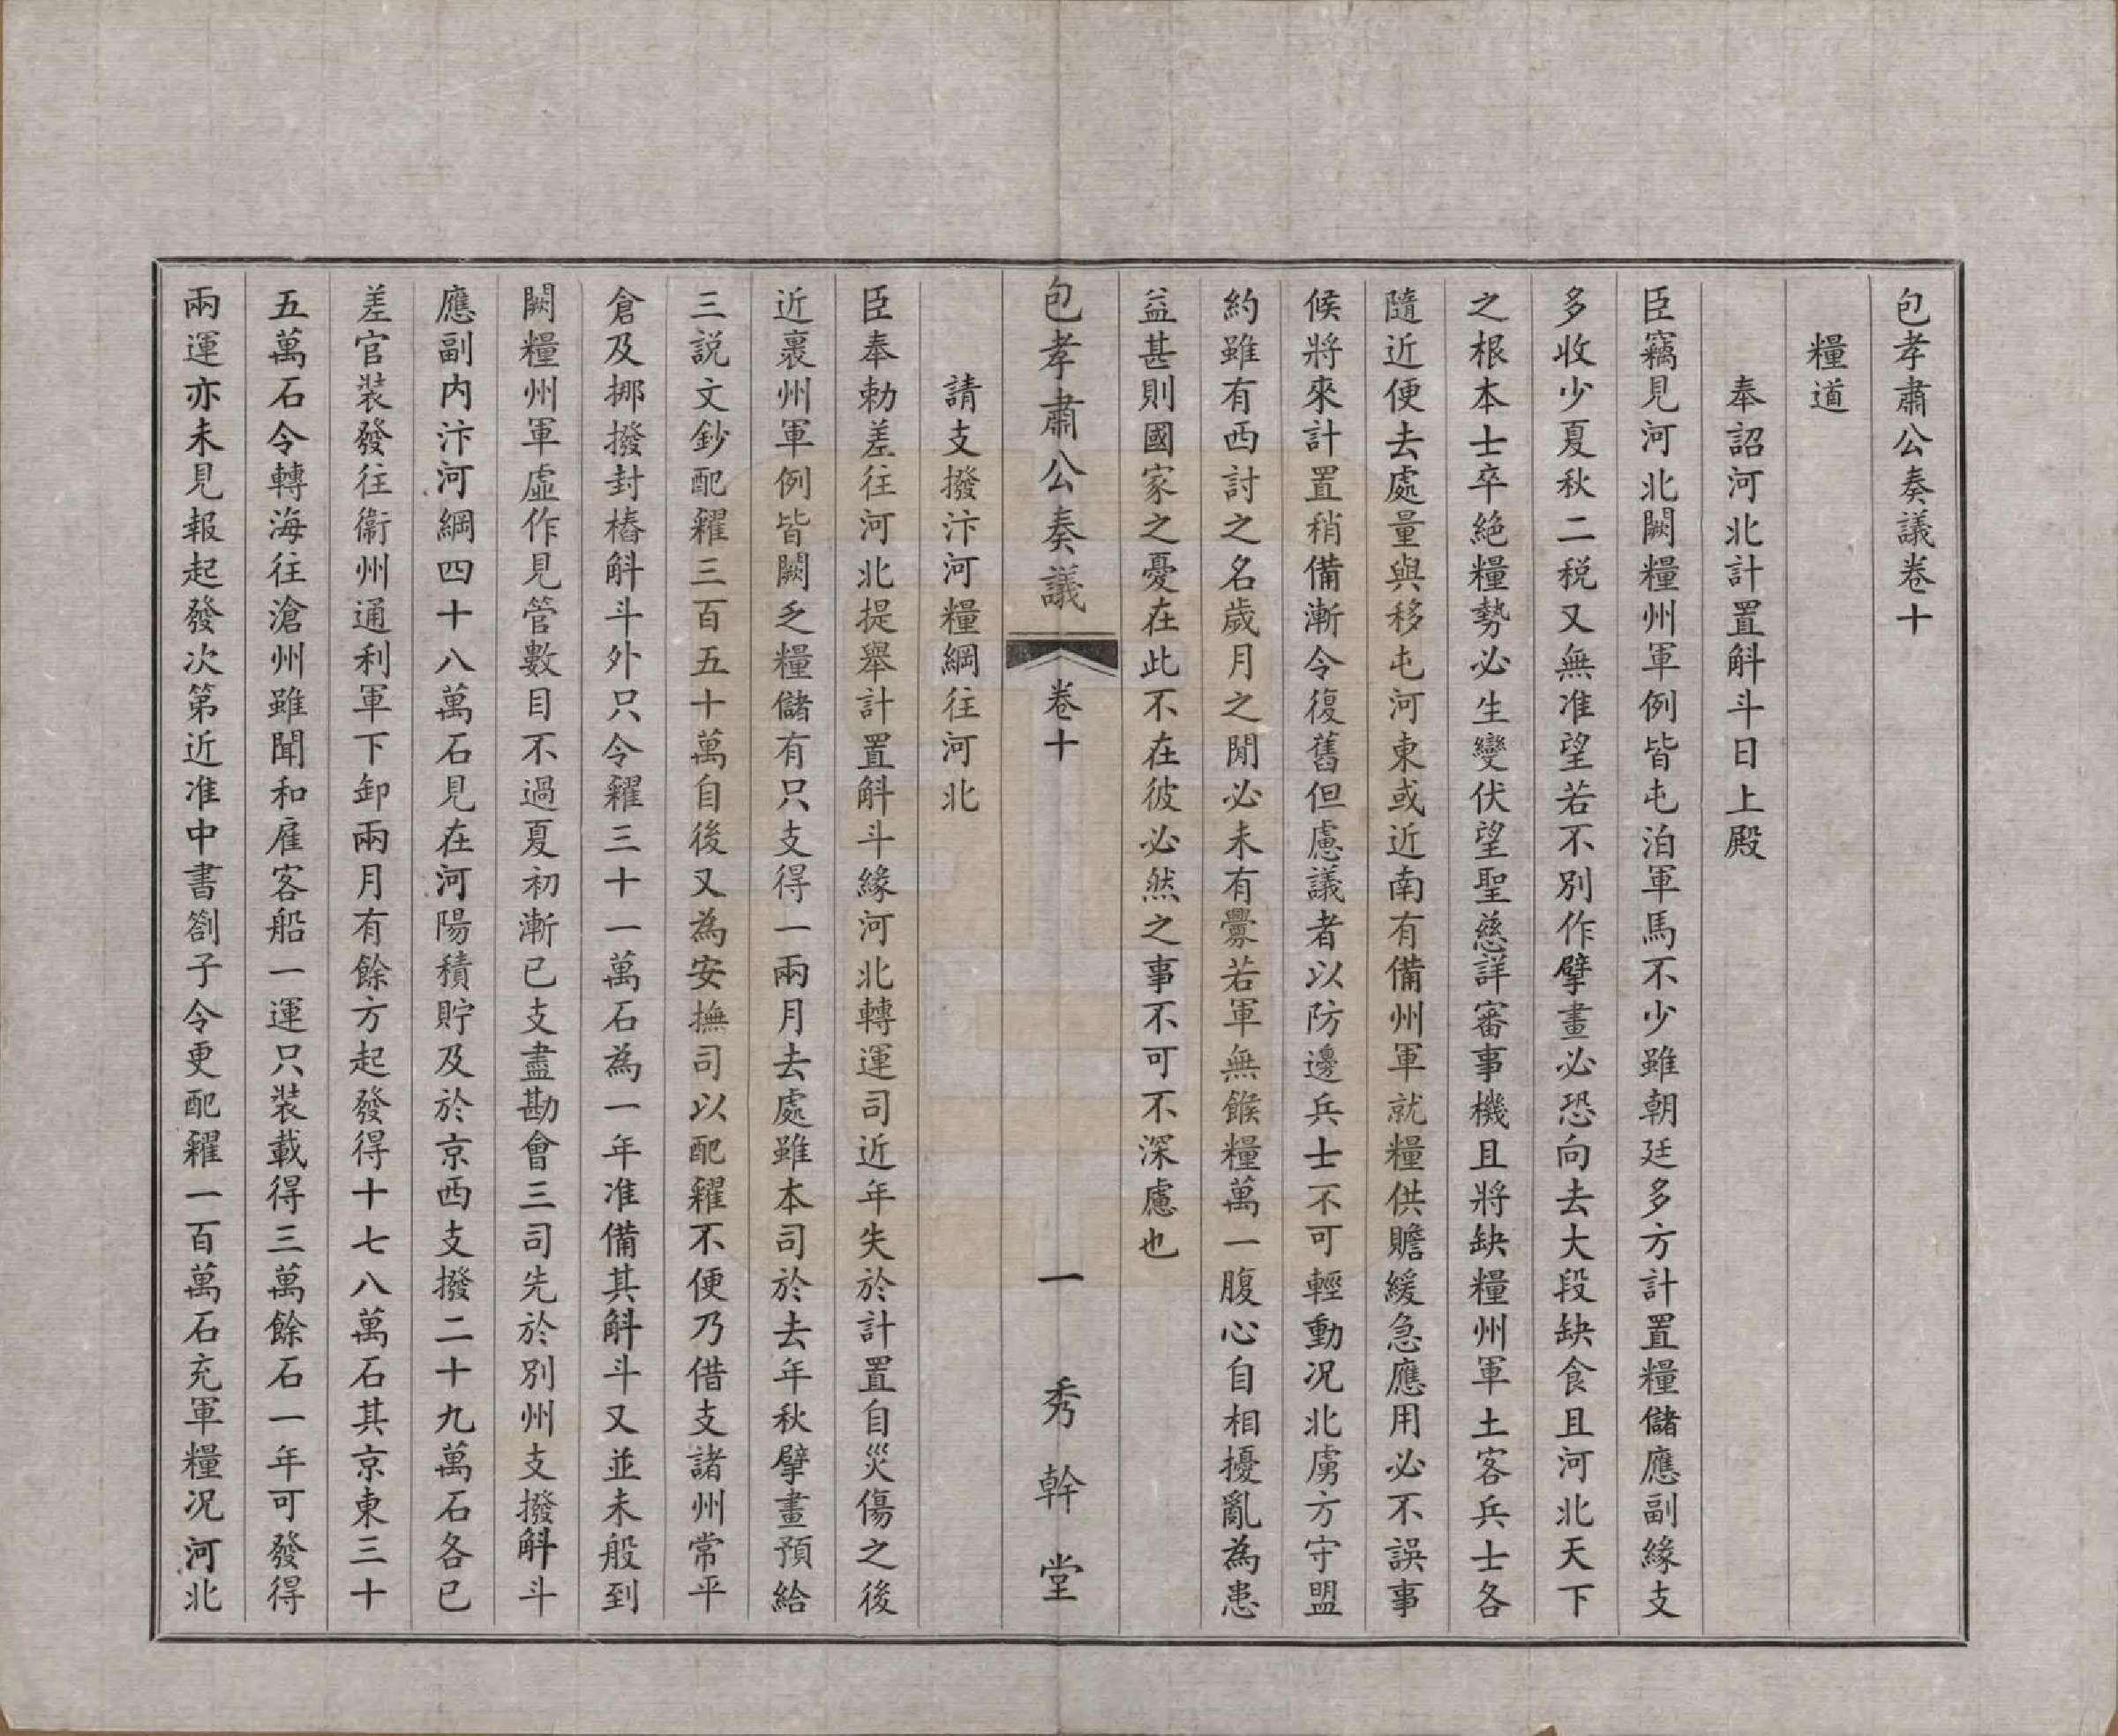 包孝肅公奏議卷十
糧道
奉詔河北計置斛斗日上殿
臣竊見河北闕糧州軍例皆屯泊軍馬不少雖朝廷多方計置糧儲應副緣支
多收少夏秋二税又無准望若不別作擘畫必恐向去大段缺食且河北天下
之根本士卒絶糧勢必生變伏望聖慈詳審事機且將缺糧州軍土客兵士各
隨近便去處量與移屯河東或近南有備州軍就糧供贍緩急應用必不誤事
候將來計置稍備漸令復舊但慮議者以防邊兵士不可輕動况北虜方守盟
約雖有西討之名歲月之閒必未有釁若軍無餱糧萬一腹心自相擾亂為患
益甚則國家之憂在此不在彼必然之事不可不深慮也
包孝肅公奏議 卷十 一 秀幹堂
請支撥汴河糧綱往河北
臣奉勅差往河北提舉計置斛斗緣河北轉運司近年失於計置自災傷之後
近裏州軍例皆闕乏糧儲有只支得一兩月去處雖本司於去年秋擘畫預給
三説文鈔配糴三百五十萬自後又為安撫司以配糴不便乃借支諸州常平
倉及挪撥封樁斛斗外只令糴三十一萬石為一年准備其斛斗又並未般到
闕糧州軍虛作見管數目不過夏初漸已支盡勘會三司先於別州支撥斛斗
應副内汴河綱四十八萬石見在河陽積貯及於京西支撥二十九萬石各已
差官裝發往衞州通利軍下卸兩月有餘方起發得十七八萬石其京東三十
五萬石令轉海往滄州雖聞和雇客船一運只裝載得三萬餘石一年可發得
兩運亦未見報起發次第近准中書劄子令更配糴一百萬石充軍糧况河北